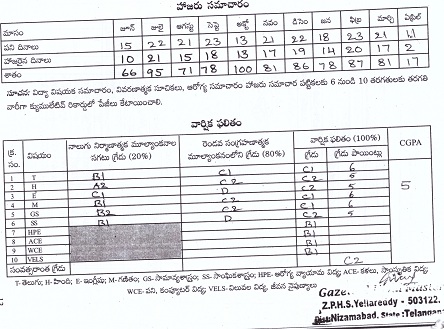 హాజరు సమాచారం
మాసం జూన్ జులై ఆగస్టు సెప్టె అక్టో నవం డిసెం జన ఫిబ్ర మార్చి ఏప్రిల్
పని దినాలు 15 22 21 23 13 21 22 18 23 21 11
హాజరైన దినాలు 10 21 15 18 13 17 19 14 20 17 2
శాతం 66 95 71 78 100 81 86 78 87 81 17
సూచన: విద్యా విషయక సమాచారం, వివరణాత్మక సూచికలు, ఆరోగ్య సమాచారం హాజరు సమాచార పట్టికలకు 6 నుండి 10 తరగతులకు తరగతి
వారీగా క్యుములేటివ్ రికార్డులో పేజీలు కేటాయించాలి.
వార్షిక ఫలితం
క్ర. సం. విషయం నాలుగు నిర్మాణాత్మక మూల్యాంకనాల సగటు గ్రేడు (20%) రెండవ సంగ్రహణాత్మక మూల్యాంకనంలోని గ్రేడు (80%) వార్షిక ఫలితం (100%) CGPA
గ్రేడు గ్రేడు పాయింట్లు
1 T B1 C1 C1 6
2 H A2 C2 C2 5
3 E C1 D
4 M B1 C1 C1 6
5 GS B2 C2 C2 5
6 SS B1 D
7 HPE B1
8 ACE B1
9 WCE B1
10 VELS B1
5
సంవత్సరాంత గ్రేడు C2
T-తెలుగు; H-హింది; E-ఇంగ్లీషు; M-గణితం; GS-సామాన్యశాస్త్రం; SS-సాంఘికశాస్త్రం; HPE-ఆరోగ్య వ్యాయామ విద్య; ACE-కళలు, సాంస్కృతిక విద్య;
WCE-పని, కంప్యూటర్ విద్య; VELS-విలువల విద్య, జీవన నైపుణ్యాలు
Z.P.H.S.Yellareddy - 503122.
Dist:Nizamabad, State:Telangana